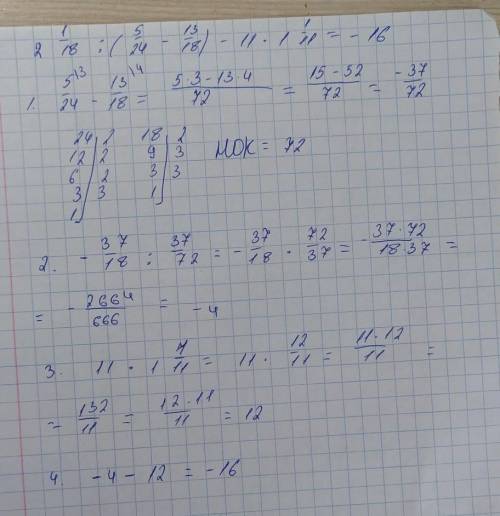 2 1/18 : (5/24 - 13/18) - 11 · 1 1/11 = - 16
1. 5/24 \3 - 13/18 \4 = (5·3-13·4)/72 = (15-52)/72 = -37/72
24|2 18|2
12|2 9|3 НОК = 72
6|2 3|3
3|3 1|
1|
2. - 37/18 : 37/72 = - 37/18 · 72/37 = - (37·72)/(18·37) =
= - 2664/666 = -4
3. 11 · 1 1/11 = 11 · 12/11 = (11·12)/11 =
= 132/11 = (12·11)/11 = 12
4. -4 - 12 = -16